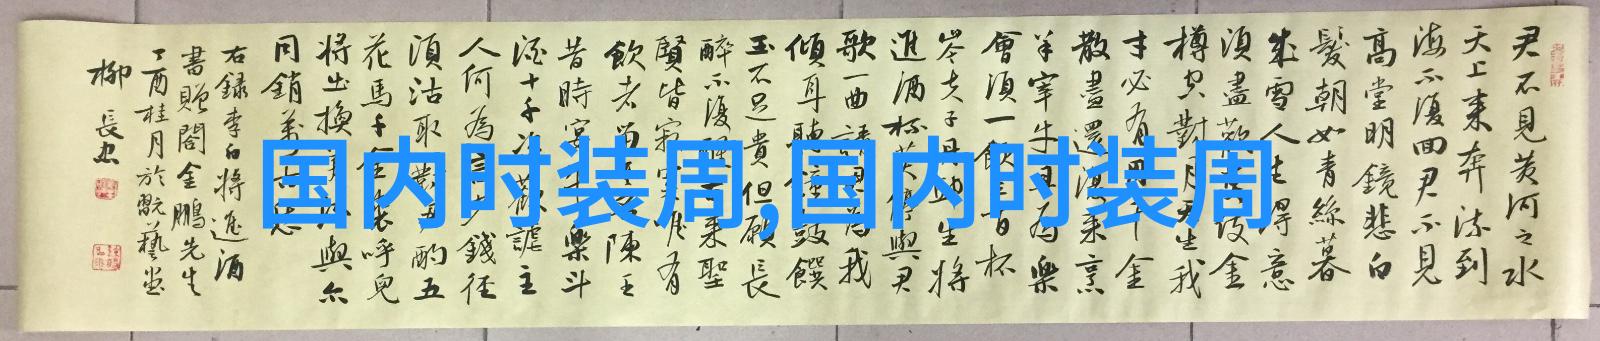 君不見黃河之水
天上来奔流到
海不復回君不見
高堂明鏡悲白
髮朝如青絲暮
成雪人生得意
須盡歡莫使金
樽空對月天生我
才必有用千金
散盡還復来烹
羊宰牛且為樂
會須一飲三百杯
岑夫子丹丘生將
進酒杯莫停與君
歌一曲請君為我
傾耳聽鐘鼓饌
玉不足貴但願長
醉不復醒 来聖
賢皆寂寞唯有
飲者留其名陳王
昔時宴平樂斗
酒十千恣歡謔主
人何為言少錢徑
須沽取對君酌五
花馬千金裘呼兒
將出換美酒與尔
同銷萬古愁
右録李白將進酒
書贈閤金鵬先生
丁酉桂月於翫藝堂
柳長忠
国内时装周,国内时装周